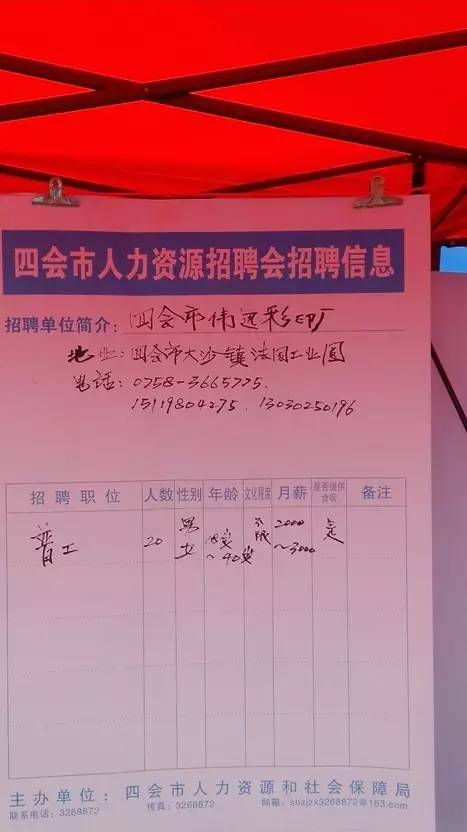 四会市人力资源招聘会招聘信息
招聘单位简介：四会市伟边彩印厂
地址：四会市大沙镇法国工业园
电话：0758-3665775.
15119804275 . 13030250196
招聘职位 人数 性别 年龄 文化程度 月薪 是否提供食宿 备注
普工 20 男女 18岁~40岁 不限 2000~3000 是
主办单位：四会市人力资源和社会保障局
联系电话：3268872 传真：3268872 邮箱：shzjzx3268872@163.com